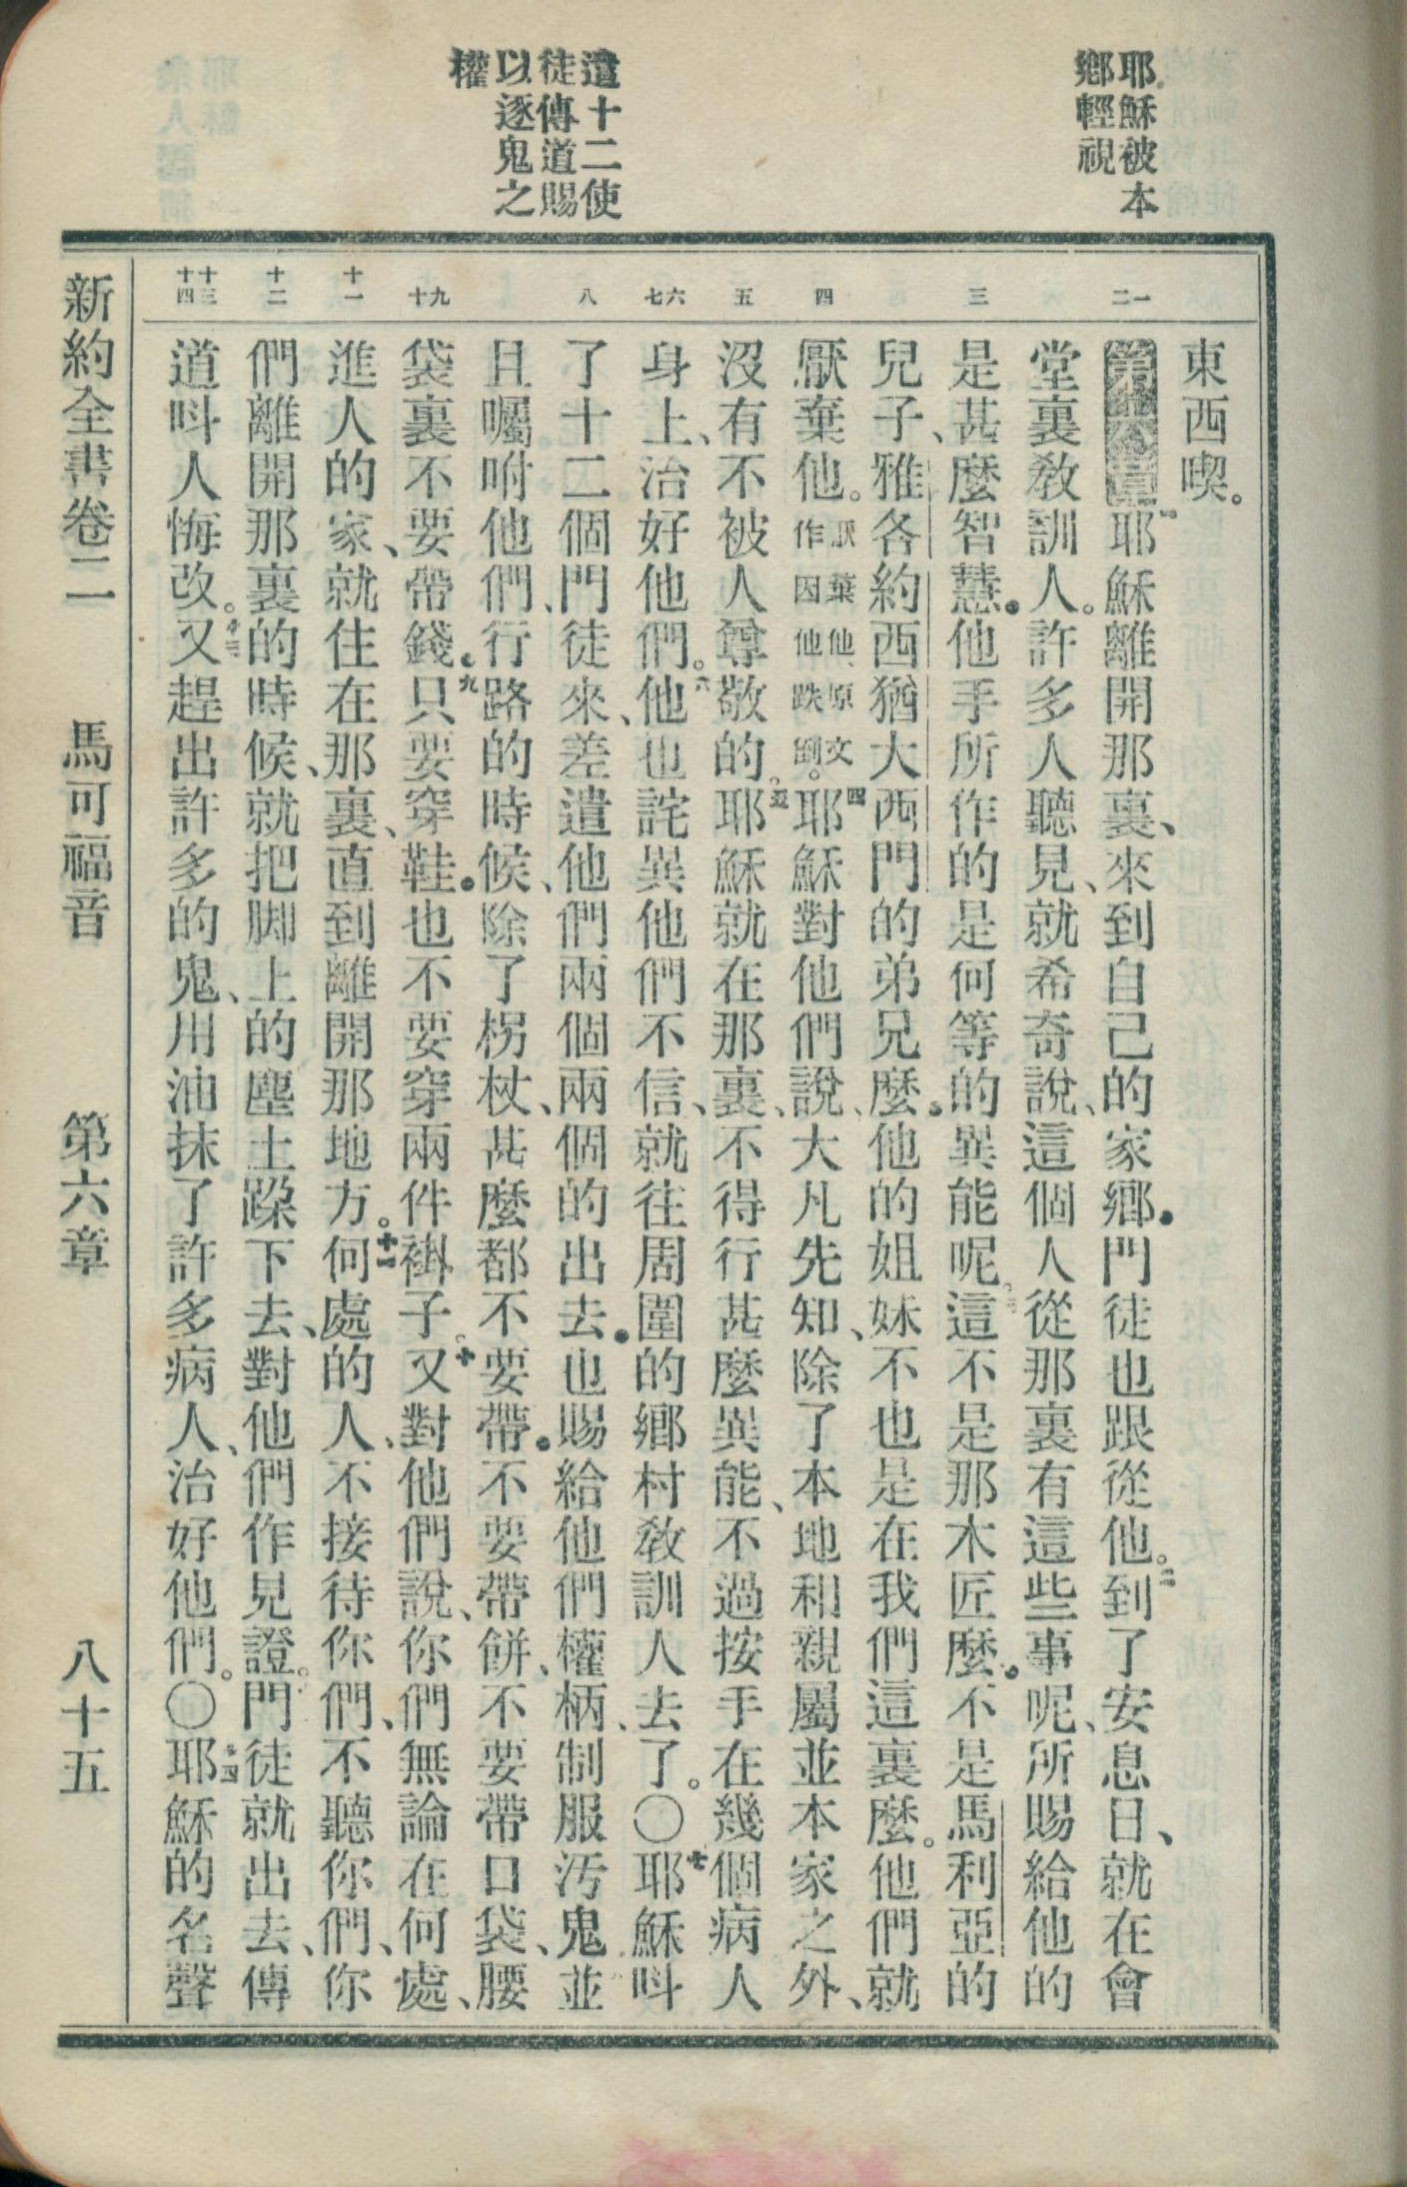 耶穌被本
鄉輕視
遣十二使
徒傳道賜
以逐鬼之
權
一二
三
四
五
六七
八
九十
十一
十二
十三十四
東西喫。
第六章一耶穌離開那裏、來到自己的家鄉．門徒也跟從他。二到了安息日、就在會
堂裏敎訓人。許多人聽見、就希奇說、這個人從那裏有這些事呢、所賜給他的
是甚麼智慧．他手所作的是何等的異能呢。三這不是那木匠麼．不是馬利亞的
兒子、雅各約西猶大西門的弟兄麼．他的姐妹不也是在我們這裏麼。他們就
厭棄他。厭棄他、原文作因他跌倒。四耶穌對他們說、大凡先知、除了本地和親屬並本家之外、
沒有不被人尊敬的。五耶穌就在那裏、不得行甚麼異能、不過按手在幾個病人
身上、治好他們。六他也詫異他們不信、就往周圍的鄉村敎訓人去了。〇七耶穌呌
了十二個門徒來、差遣他們兩個兩個的出去．也賜給他們權柄、制服汚鬼並
且囑咐他們、行路的時候、除了柺杖、甚麼都不要帶．不要帶餅、不要帶口袋、腰
袋裏不要帶錢．九只要穿鞋．也不要穿兩件褂子。十又對他們說、你們無論在何處、
進人的家、就住在那裏、直到離開那地方。十一何處的人、不接待你們、不聽你們、你
們離開那裏的時候、就把脚上的塵土跺下去、對他們作見證。門徒就出去、傳
道呌人悔改。十三又趕出許多的鬼、用油抹了許多病人、治好他們。〇十四耶穌的名聲
新約全書卷二 馬可福音 第六章 八十五